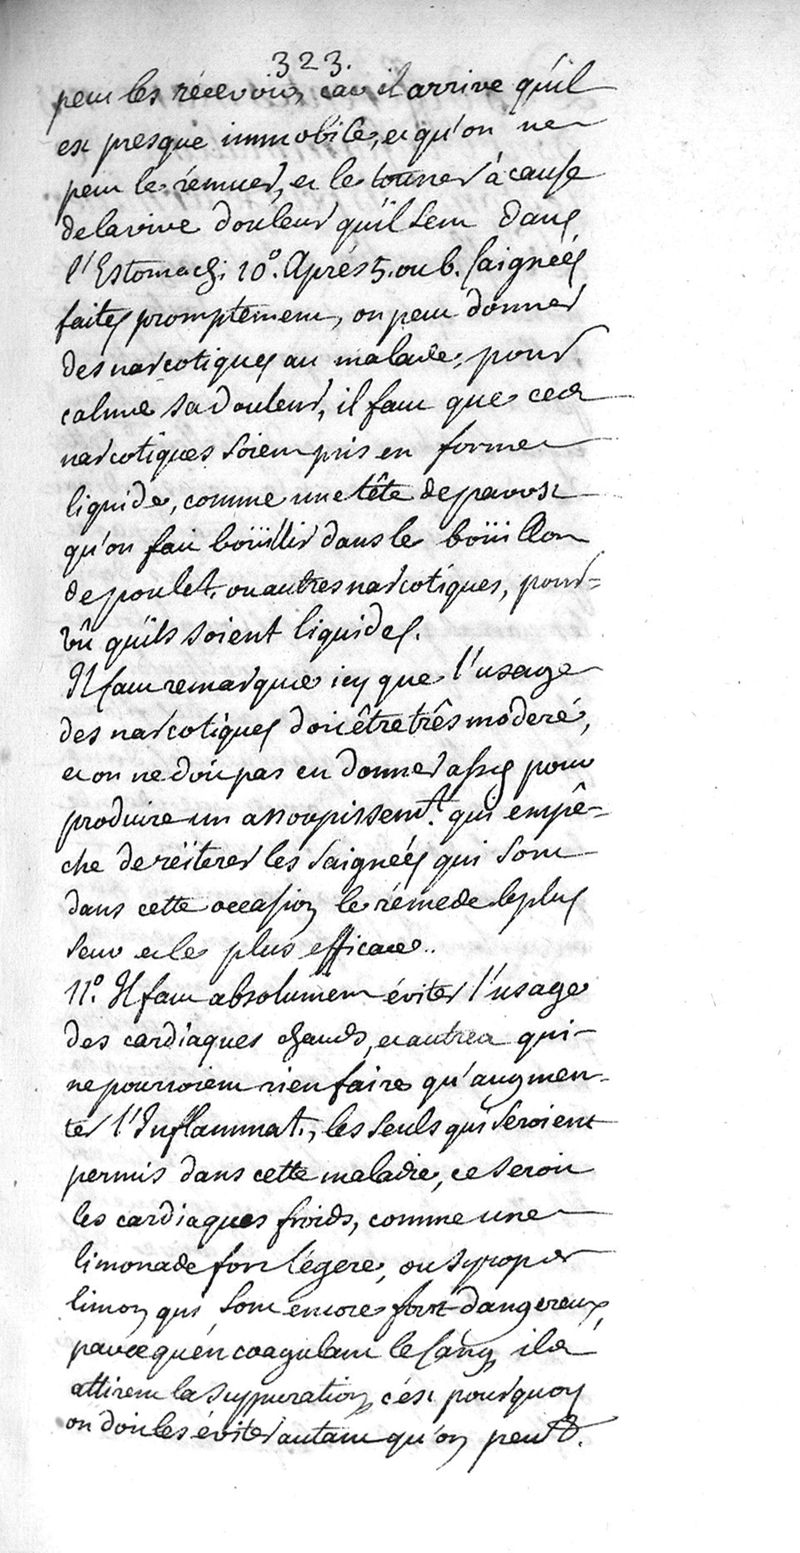 .323.
peut les récevoir, car il arrive qu'il
est presque immobile, et qu'on ne
peut le rémuer, et le tourner à cause
de la vive douleur qu'il sent dans
l'Estomach. 10°. Aprés 5. ou 6. saignées
faites promptement, on peut donner
des narcotiques au malade, pour
calmer sa douleur, il faut que ces
narcotiques soient pris en forme
liquide, comme une tête de pavost
qu'on fait boüillir dans le boüillon
de poulet, ou autres narcotiques, pour=
vû qu'ils soient liquides.
Il faut remarquer icy que l'usage
des narcotiques doit être três moderé,
et on ne doit pas en donner assés pour
produire un assoupissemt. qui empê-
che de réiterer les saignées qui sont
dans cette occasion le rémede le plus
seur et le plus efficace..
11°. Il faut absolument éviter l'usage
des cardiaques chauds, et autres qui
ne pourroient rien faire qu'augmen-
ter l'Inflammat., les seuls qui seroient
permis dans cette maladie, ce seroit
les cardiaques froids, comme une
limonade fort légere, ou syrop de
limon qui sont encore fort dangereux,
parce qu'en coagulant le sang ils
attirent la suppuration, c'est pourquoy
on doit les éviter autant qu'on peut &.